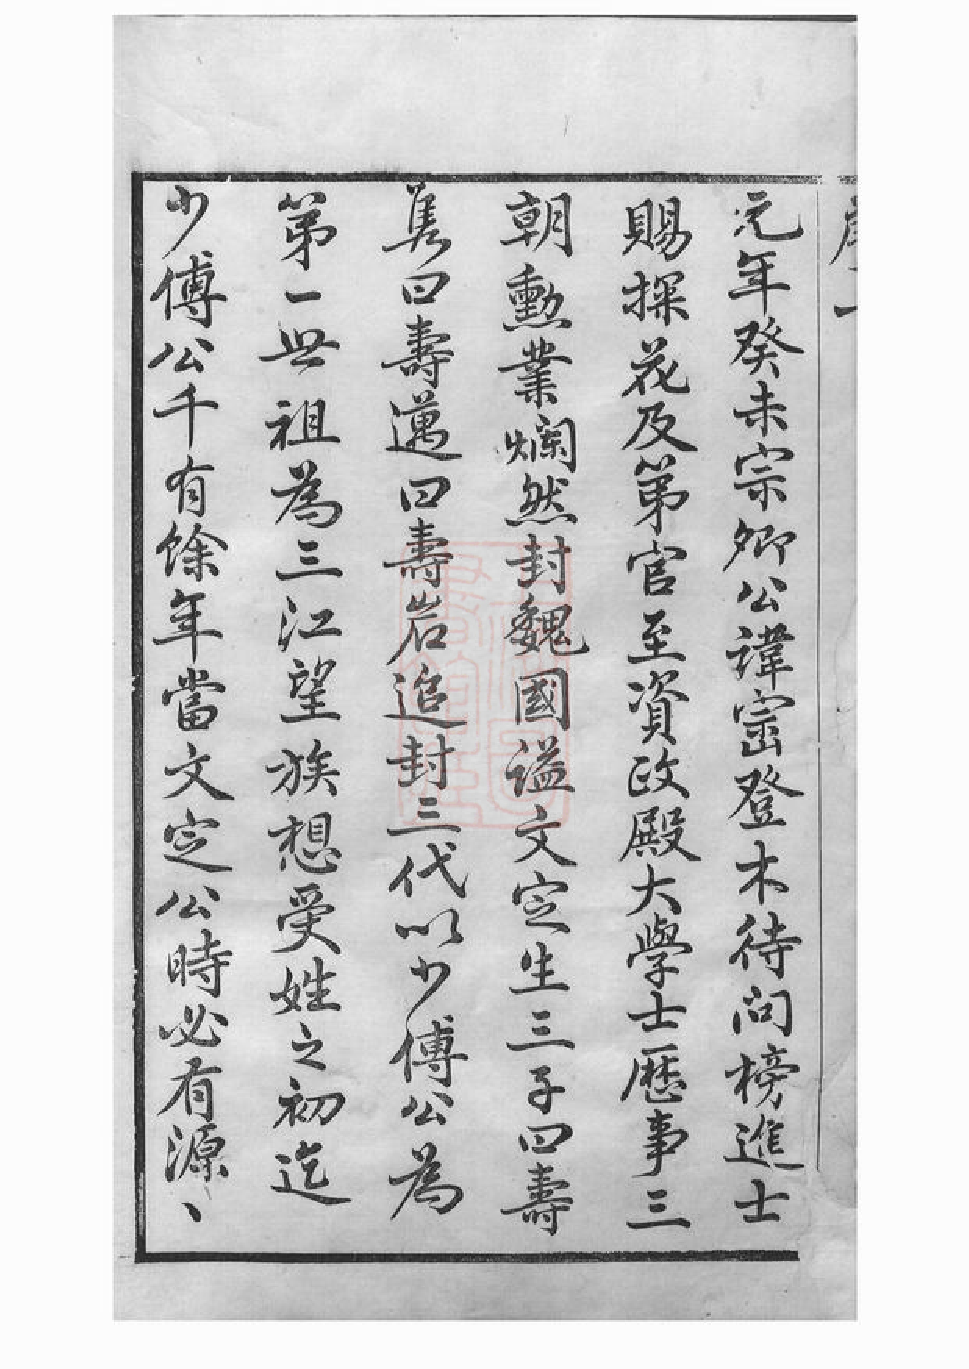 元年癸未宗卿公諱崈登木待問榜進士
賜探花及第官至資政殿大學士歷事三
朝勳業爛然封魏國謚文定生三子曰壽
隽曰壽邁曰壽岩追封三代以少傅公為
第一世祖為三江望族想受姓之初迄
少傅公千有餘年當文定公時必有源丶